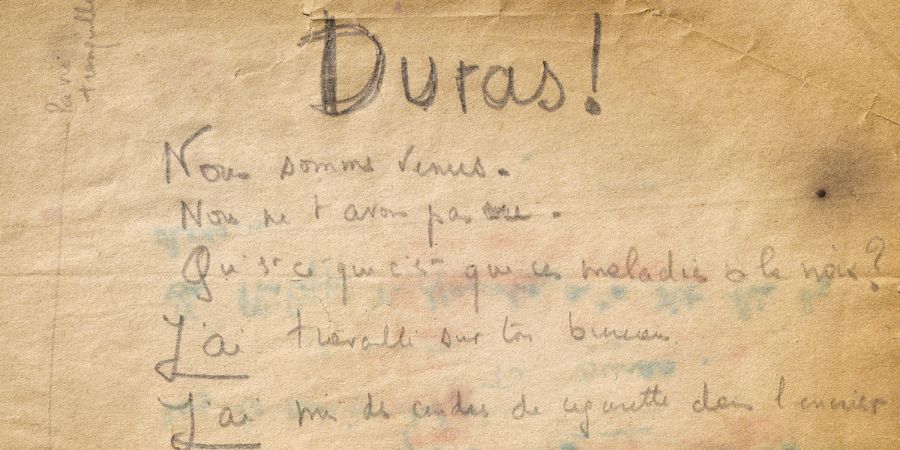 La vie
tranquille
Duras!
Nous sommes venus.
Nous ne t'avons pas vue.
Qu'est ce que c'est que ces maladies à la noix?
J'ai travaillé sur ton bureau
J'ai mis des cendres de cigarette dans l'encrier